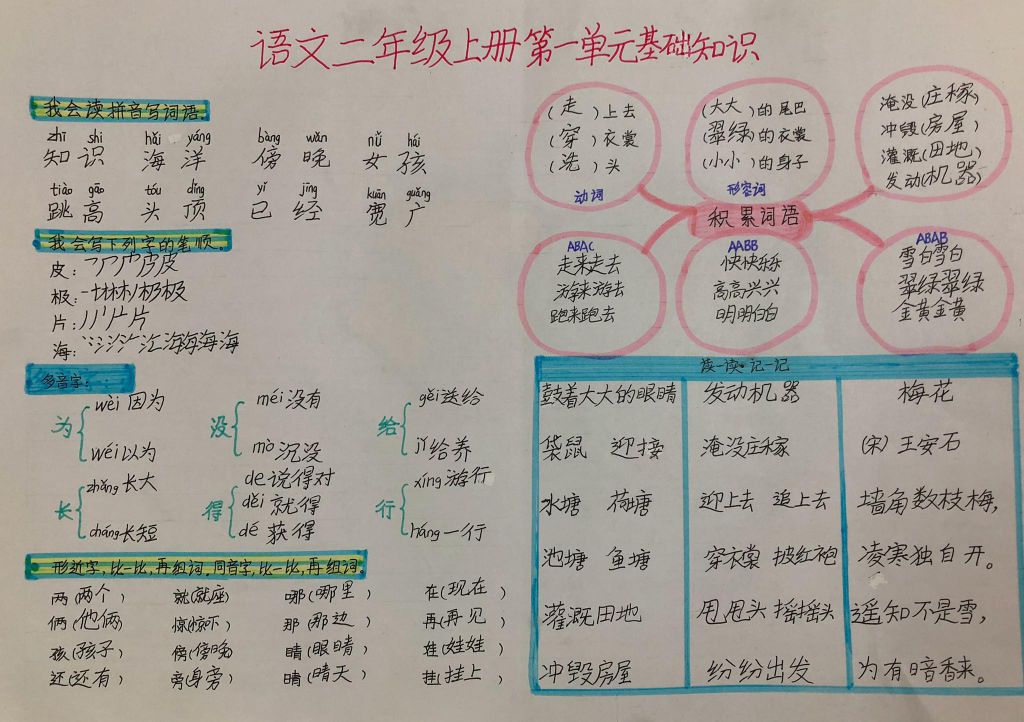 语文二年级上册第一单元基础知识
我会读拼音写词语.
zhī shi hǎi yáng bàng wǎn nǚ hái
知识 海洋 傍晚 女孩
tiào gāo tóu dǐng yǐ jīng kuān guǎng
跳高 头顶 已经 宽广
我会写下列字的笔顺.
皮:
极:
片:
海:
多音字:
为 wèi 因为
wéi 以为
没 méi 没有
mò 沉没
给 gěi 送给
jǐ 给养
长 zhǎng 长大
cháng 长短
得 de 说得对
děi 就得
dé 获得
行 xíng 游行
háng 一行
形近字,比一比,再组词,同音字,比一比,再组词.
两(两个) 就(就座) 哪(哪里) 在(现在)
俩(他俩) 惊(惊吓) 那(那边) 再(再见)
孩(孩子) 傍(傍晚) 睛(眼睛) 娃(娃娃)
还(还有) 旁(身旁) 晴(晴天) 挂(挂上)
(走)上去
(穿)衣裳
(洗)头
动词
(大大)的尾巴
(翠绿)的衣裳
(小小)的身子
形容词
淹没(庄稼)
冲毁(房屋)
灌溉(田地)
发动(机器)
积累词语
ABAC
走来走去
游来游去
跑来跑去
AABB
快快乐乐
高高兴兴
明明白白
ABAB
雪白雪白
翠绿翠绿
金黄金黄
读一读·记一记
鼓着大大的眼睛 发动机器 梅花
袋鼠 迎接 淹没庄稼 (宋) 王安石
水塘 荷塘 迎上去 追上去 墙角数枝梅,
池塘 鱼塘 穿衣裳 披红袍 凌寒独自开。
灌溉田地 甩甩头 摇摇头 遥知不是雪,
冲毁房屋 纷纷出发 为有暗香来。